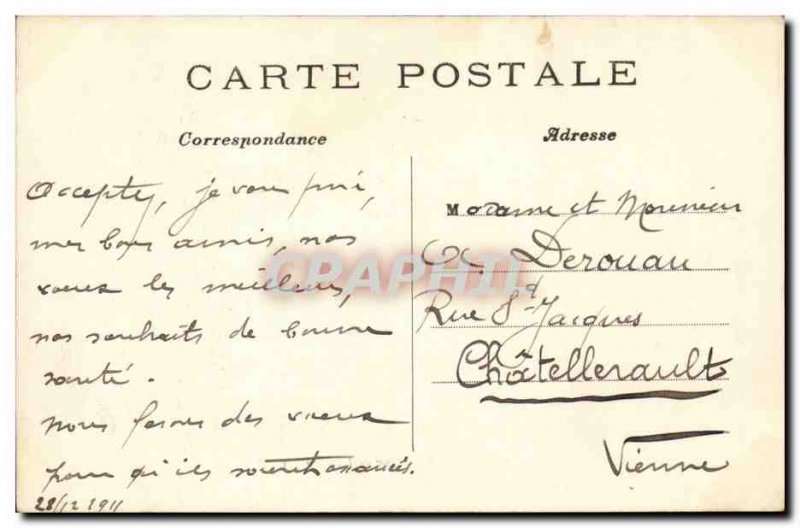 CARTE POSTALE
Correspondance
Acceptez, je vous prie,
mes bons amis, nos
vœux les meilleurs,
nos souhaits de bonne
santé.
nous ferons des vœux
pour qu'ils soient exaucés.
28/12 1911
Adresse
Madame et Monsieur
Derouau
Rue St Jacques
Châtellerault
Vienne
CPRAPHIL